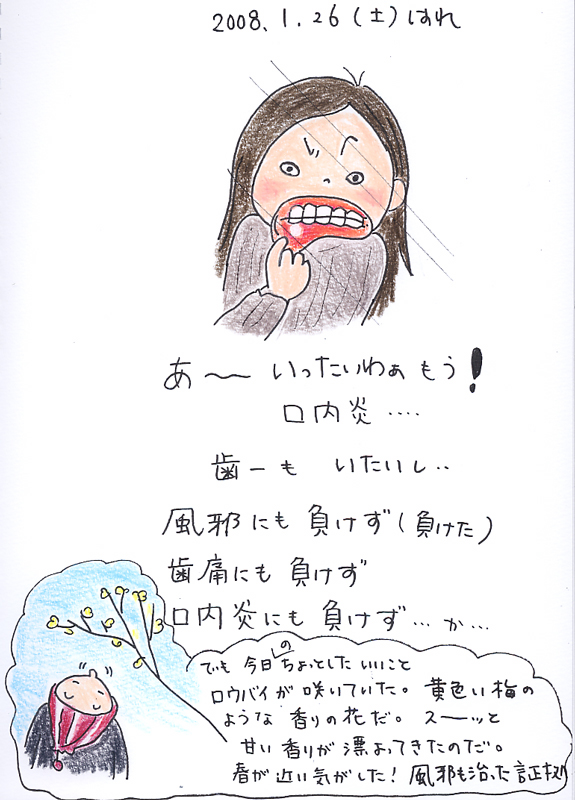 2008.1.26(土)はれ
あ〜いったいわぁもう!
口内炎‥‥
歯ーも いたいし‥
風邪にも負けず(負けた)
歯痛にも負けず
口内炎にも負けず…か…
でも今日のちょっとしたいいこと
ロウバイが咲いていた。黄色い梅の
ような香りの花だ。スーーッと
甘い香りが漂ってきたのだ。
春が近い気がした!風邪も治った証拠